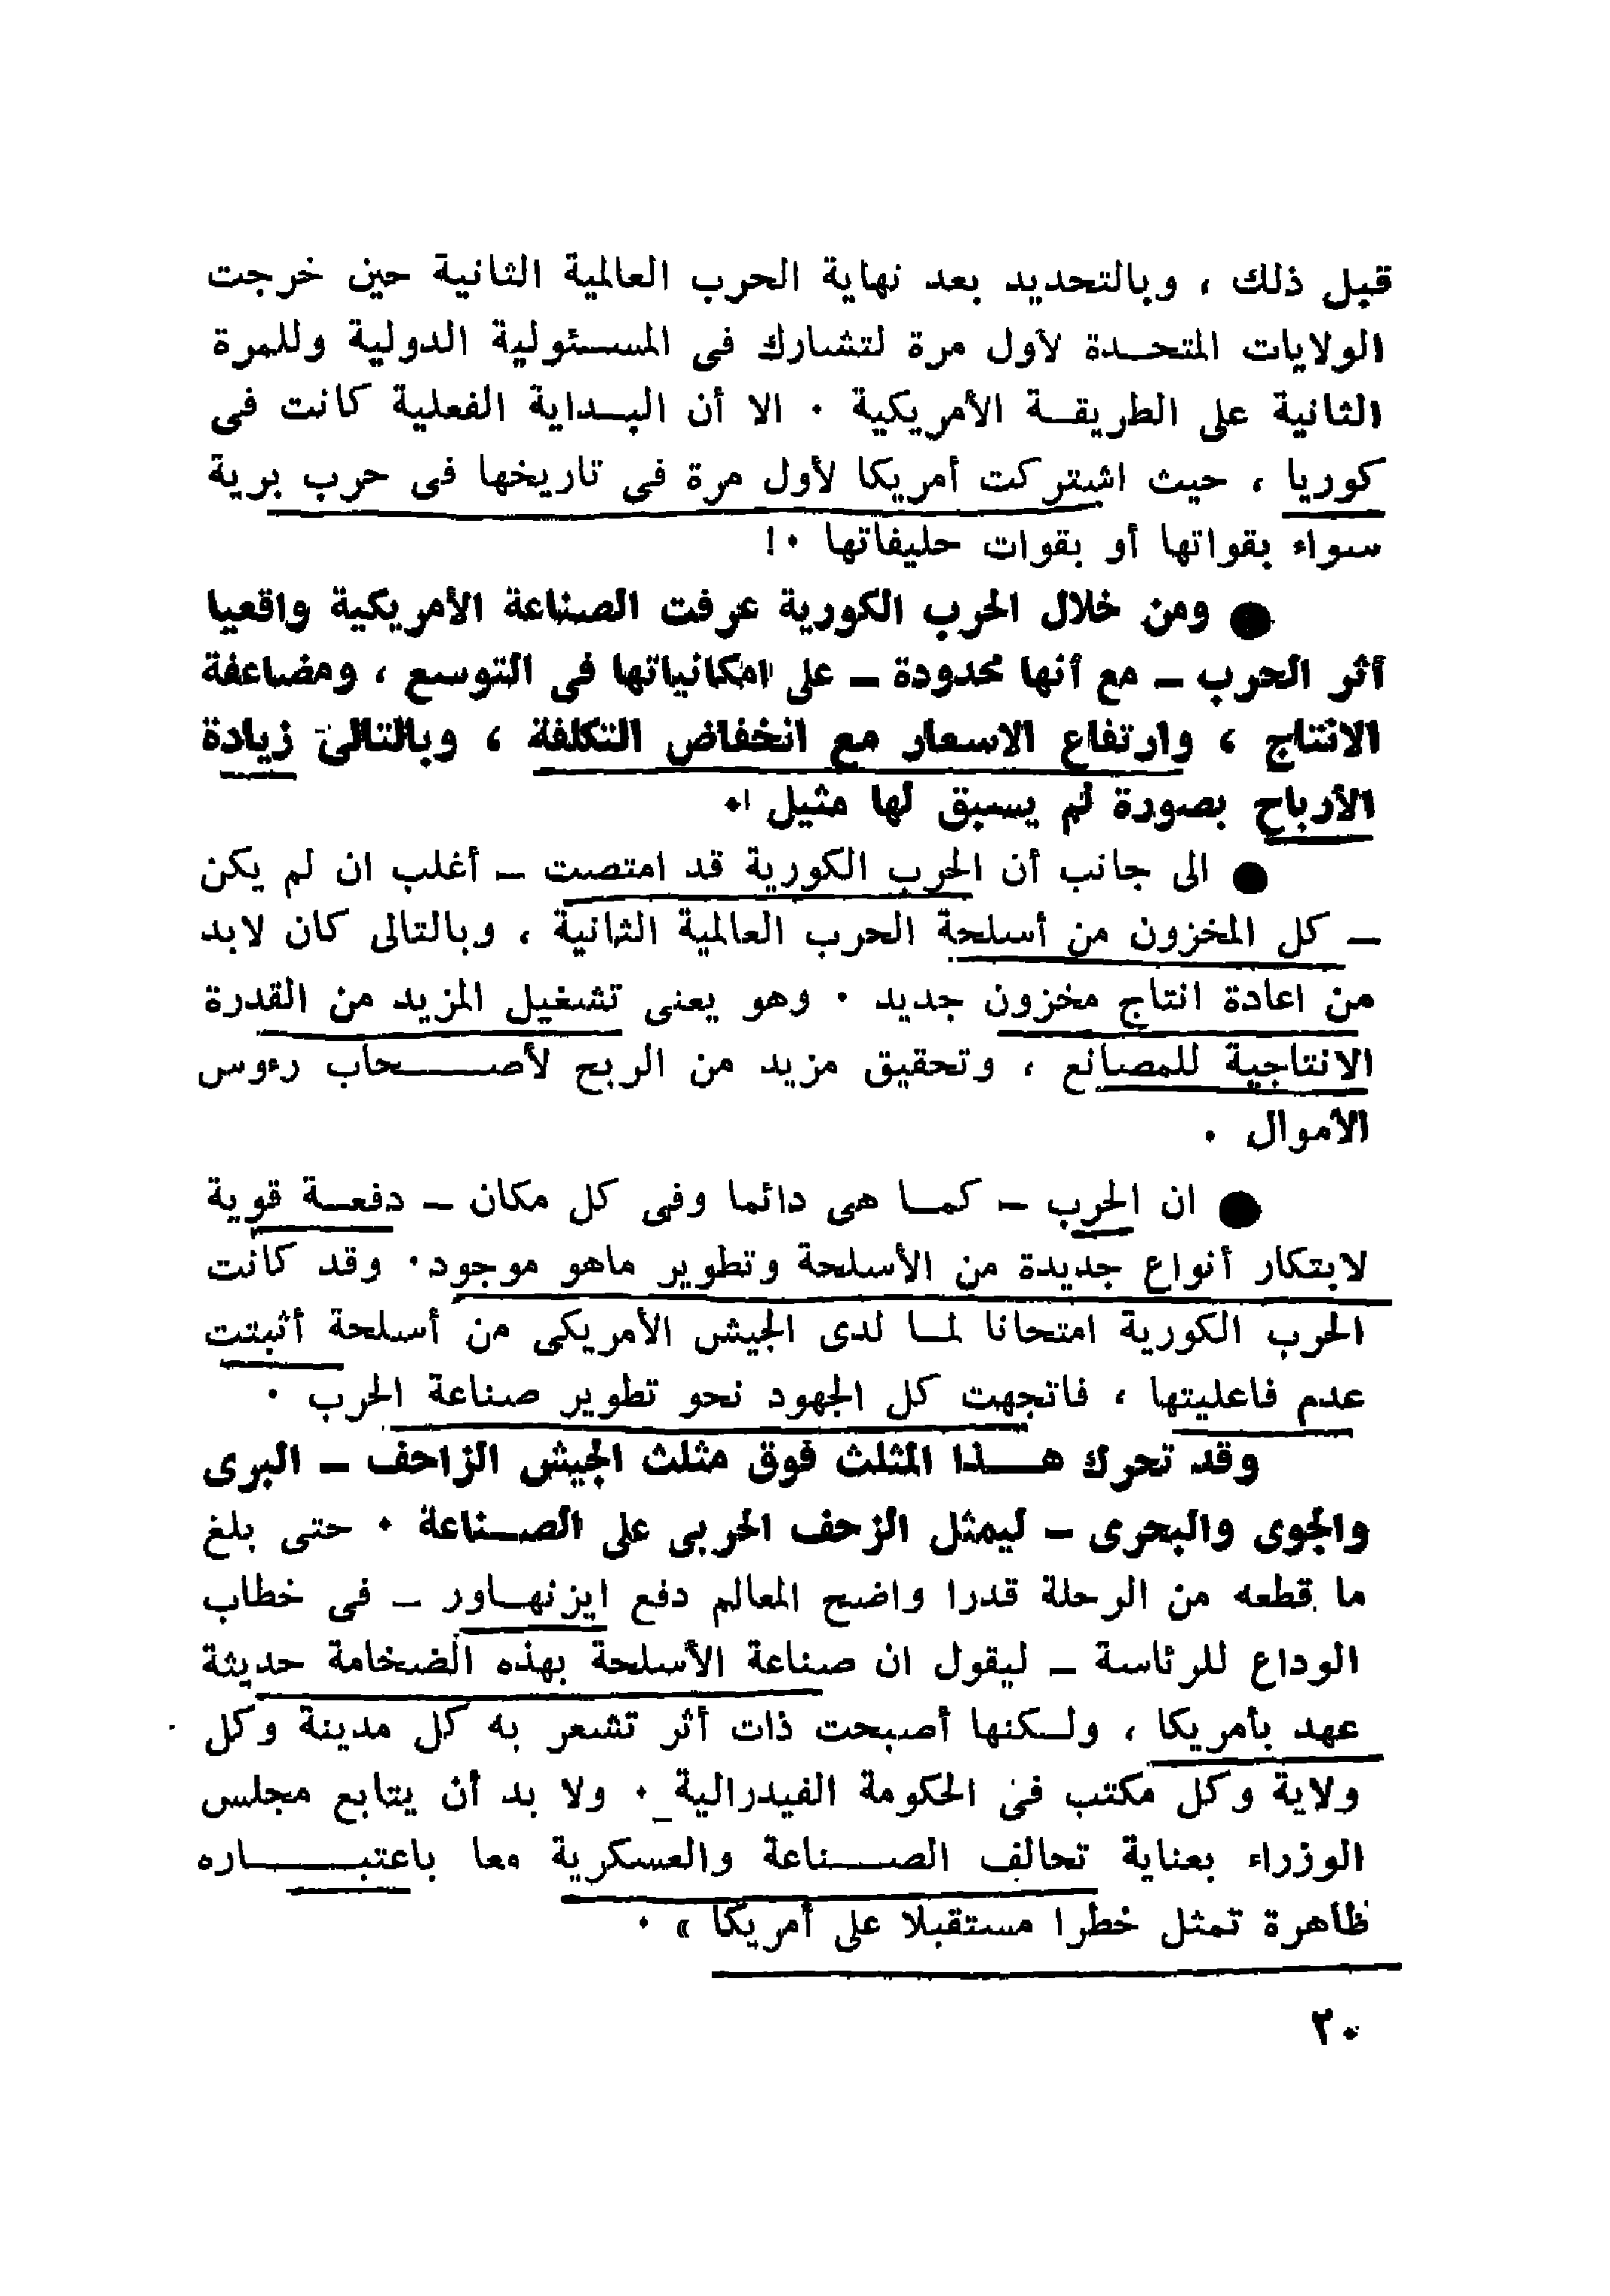 قبل ذلك ، وبالتحديد بعد نهاية الحرب العالمية الثانية حين خرجت
الولايات المتحدة لأول مرة لتشارك فى المسئولية الدولية وللمرة
الثانية على الطريقة الأمريكية . الا أن البداية الفعلية كانت فى
كوريا ، حيث اشتركت أمريكا لأول مرة فى تاريخها فى حرب برية
سواء بقواتها أو بقوات حليفاتها .!
● ومن خلال الحرب الكورية عرفت الصناعة الأمريكية واقعيا
أثر الحرب – مع أنها محدودة – على امكانياتها فى التوسع ، ومضاعفة
الانتاج ، وارتفاع الاسعار مع انخفاض التكلفة ، وبالتالى زيادة
الأرباح بصورة لم يسبق لها مثيل !.
● الى جانب أن الحرب الكورية قد امتصت – أغلب ان لم يكن
– كل المخزون من أسلحة الحرب العالمية الثانية ، وبالتالى كان لابد
من اعادة انتاج مخزون جديد . وهو يعنى تشغيل المزيد من القدرة
الانتاجية للمصانع ، وتحقيق مزيد من الربح لأصحاب رءوس
الأموال .
● ان الحرب – كما هى دائما وفى كل مكان – دفعة قوية
لابتكار أنواع جديدة من الأسلحة وتطوير ماهو موجود . وقد كانت
الحرب الكورية امتحانا لما لدى الجيش الأمريكى من أسلحة أثبتت
عدم فاعليتها ، فاتجهت كل الجهود نحو تطوير صناعة الحرب .
وقد تحرك هذا المثلث فوق مثلث الجيش الزاحف – البرى
والجوى والبحرى – ليمثل الزحف الحربى على الصناعة . حتى بلغ
ما قطعه من الرحلة قدرا واضح المعالم دفع ايزنهاور – فى خطاب
الوداع للرئاسة – ليقول ان صناعة الأسلحة بهذه الضخامة حديثة
عهد بأمريكا ، ولكنها أصبحت ذات أثر تشعر به كل مدينة وكل
ولاية وكل مكتب فى الحكومة الفيدرالية . ولا بد أن يتابع مجلس
الوزراء بعناية تحالف الصناعة والعسكرية معا باعتباره
ظاهرة تمثل خطرا مستقبلا على أمريكا » .
٢٠